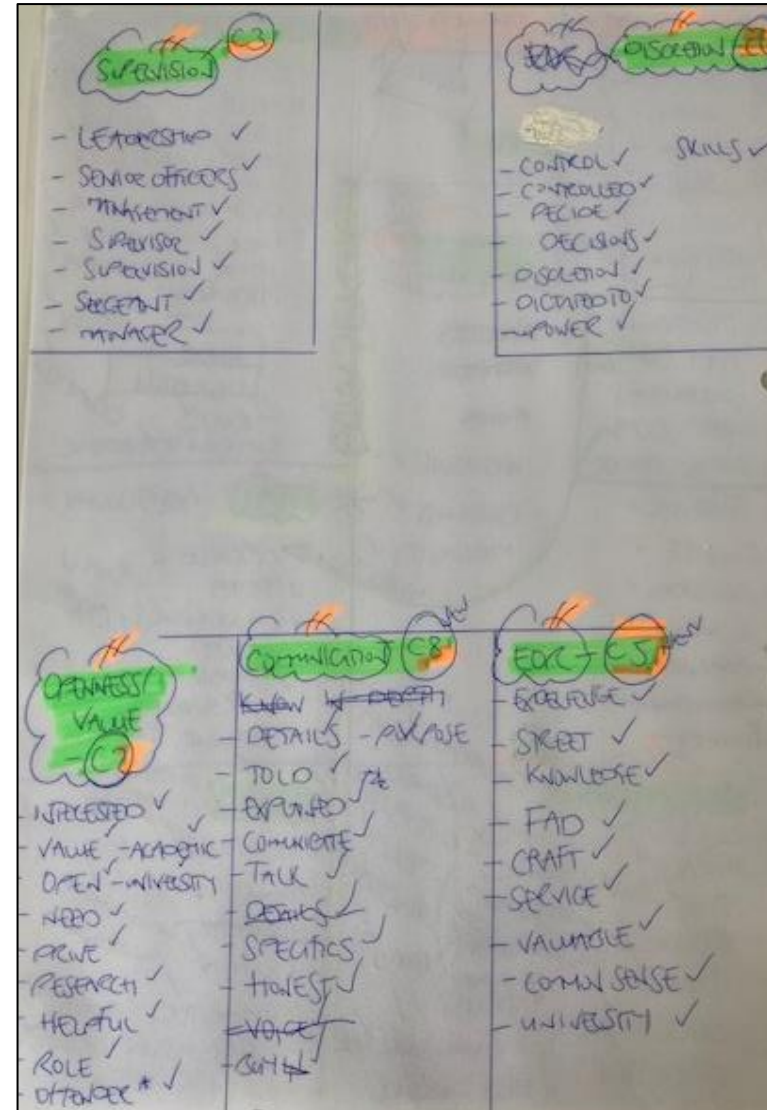 SUPERVISION C3
- LEADERSHIP ✓
- SENIOR OFFICERS ✓
- MANAGEMENT ✓
- SUPERVISOR ✓
- SUPERVISION ✓
- SERGEANT ✓
- MANAGER ✓
DISCRETION
SKILLS ✓
- CONTROL ✓
- CONTROLLED ✓
- DECIDE ✓
DECISIONS ✓
- DISCRETION ✓
- DICTATED TO ✓
- POWER ✓
OPENNESS/
VALUE
- C7
- INTERESTED ✓
- VALUE ✓ - ACADEMIC ✓
OPEN ✓ - UNIVERSITY
- NEED ✓
- DRIVE ✓
- RESEARCH ✓
- HELPFUL ✓
- ROLE ✓
- OFFENDER * ✓
COMMUNICATION C8
KNOW IN-DEPTH
- DETAILS - PURPOSE
- TOLD ✓
- EXPLAINED ✓
- COMMUNICATE ✓
- TALK ✓
- DETAILS ✓
- SPECIFICS ✓
- HONEST ✓
- VOICE
C5
- EXPERIENCE ✓
- STREET ✓
- KNOWLEDGE ✓
- FAD ✓
- CRAFT ✓
- SERVICE ✓
- VALUABLE ✓
- COMMON SENSE ✓
- UNIVERSITY ✓